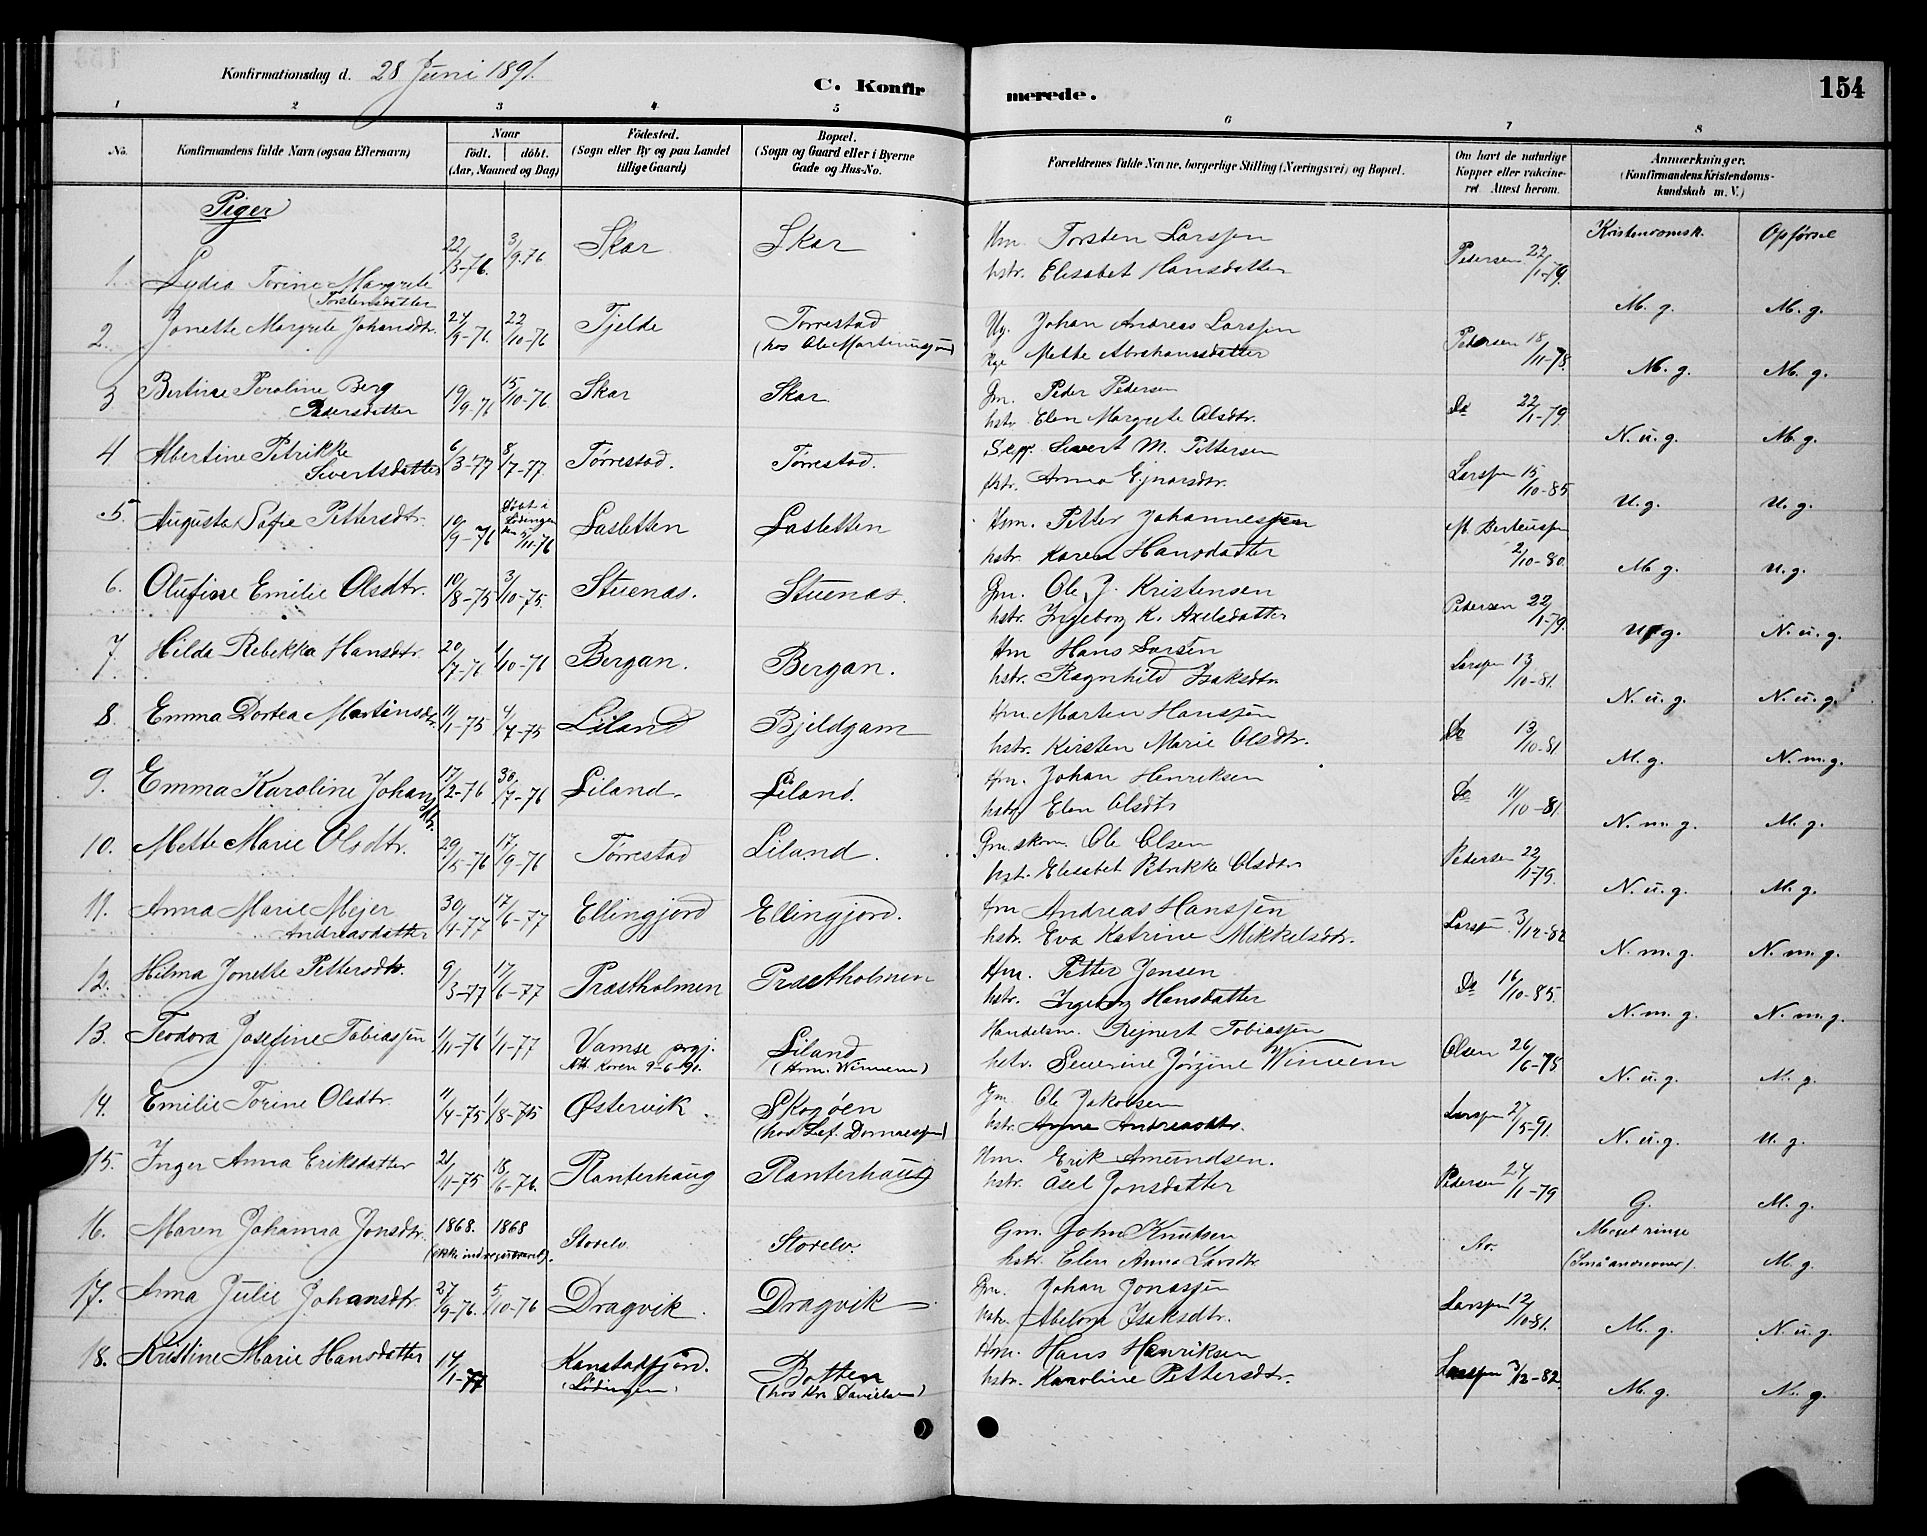 Konfirmationsdag d. 28 Juni 1891.
C. Konfirmerede.
154
1 2 3 4 5 6 7 8
No.
Konfirmandens fulde Navn (ogsaa Efternavn)
Naar
födt. | döbt.
(Aar, Maaned og Dag)
Födested.
(Sogn eller By og paa Landet
tillige Gaard)
Bopæl.
(Sogn og Gaard eller i Byerne
Gade og Hus-No.
Forældrenes fulde Navne, borgerlige Stilling (Næringsvei) og Bopæl.
Om havt de naturlige
Kopper eller vakcine-
ret. Attest herom.
Anmærkninger.
(Konfirmandens Kristendoms-
kundskab m. V.)
Piger
Kristendomsk. Opførsel
1. Lydia Torine Margrete 22/3-76. 3/9-76 Skar Skar Hm. Torsten Larssen Pedersen 22/1-79. M. g. M. g.
(Torstensdatter hstr. Elisabet Hansdatter
2. Jonette Margrete Johansdtr. 24/9-76. 22/10-76 Tjelde Torrestad Ug. Johan Andreas Larssen Pedersen 18/11-78. M. g. M. g.
(hos Ole Martinussen) Pge Mette Abrahamsdatter
3 Bertine Peroline Berg 19/9-76 15/10-76. Skar Skar Gm. Peder Pedersen Do 22/1-79. N. u. g. M. g.
Pedersdatter hstr. Elen Margrete Olsdtr.
4 Albertine Petrikke 6/3-77 8/7-77. Tørrestad. Tørrestad. Sivert M. Pettersen Larssen 15/10-85 U. g. U. g.
Sivertsdatter hstr. Anna Ejnarsdtr.
5. Augusta Sofie Pettersdtr. 19/9-76 Døbt i
Lødingen
den 5/11-76 Lasletten Lasletten Hm. Petter Johannessen M. Berteussen 2/10-80. M. g. U. g.
hstr. Karen Hansdatter
6. Olufine Emilie Olsdtr. 10/8-75 3/10-75. Stuenæs. Stuenæs. Gm. Ole J. Kristensen Pedersen 22/1-79. U. g. N. u. g.
hstr. Ingeborg K. Axelsdatter
7. Hilda Rebekka Hansdtr. 20/7-76 1/10-76 Bergan. Bergan. Hm Hans Larsen Larssen 13/10-81. N. u. g. N. u. g.
hstr. Ragnhild Isaksdtr
8. Emma Dortea Martinsdtr 11/1-75 4/7-75 Liland Bjeldgam Hm. Marten Hanssen Do 13/10-81 M. g. N. m. g.
hstr. Kirsten Marie Olsdtr.
9. Emma Karoline Johansdtr. 17/2-76 30/7-76 Liland. Liland. Hm. Johan Henriksen Do 11/10-81. N. m. g. M. g.
hstr Elen Olsdtr
10. Mette Marie Olsdtr. 29/5-76 17/9-76 Tørrestad Liland. Gm. skom. Ole Olsen Pedersen 22/1-79. N. u. g. M. g.
hst. Elisabet Birikke Olsdtr
11. Anna Marie Mejer 30/4-77 17/6-77 Ellingjord Ellingjord. Hm Andreas Hanssen Larssen. 3/12-82 N. m. g. N. m. g.
Andreasdatter hstr. Eva Katrine Mikkelsdtr.
12. Hilma Jonette Pettersdtr. 9/3-77 17/6-77 Præstholmen Præstholmen Hm. Petter Jensen Do 16/10-85. N. m. g. N. m. g.
hstr. Ingeborg Hansdatter
13. Teodora Josefine Tobiassen 1/11-76 1/1-77 Vamse prgj. Liland Handelsm. Rejnert Tobiassen Olsen 26/6-78 N. u. g. M. g.
Att. Koren 9-6-90. (Hrm. Winnem) hstr. Severine Jørgine Winnem
14. Emilie Torine Olsdtr. 11/4-75 1/8-75 Østervik. Skogøen Gm. Ole Jakobsen Larssen 27/5-91. N. u. g. U. g.
hstr. Anne Andreasdtr.
15. Inger Anna Eriksdatter 21/11-75 18/6-76. Planterhaug Planterhaug Hm. Erik Amundsen. Pedersen 24/1-79 G. M. g.
hstr. Åsel Jonsdatter
16. Maren Johanna Jonsdtr. 1868. 1868 Storelv. Storelv. Gm. John Knutsen No. Meget ringe M. g.
(ikke indregistreret). hstr. Elen Anna Larsdtr. (Små andsevner).
17. Anna Julie Johansdtr 27/9-76. 5/10-76 Dragvik. Dragvik Gm. Johan Jonassen Larssen 12/10-81. M. g. N. u. g.
hstr. Abelona Isaksdtr.
18. Kristine Marie Hansdatter 14/1-77 Kanstadfjord. Botten Hm. Hans Henriksen Larssen 3/12-82. M. g. N. g.
(Lødingen) hstr. Karoline Pettersdtr.